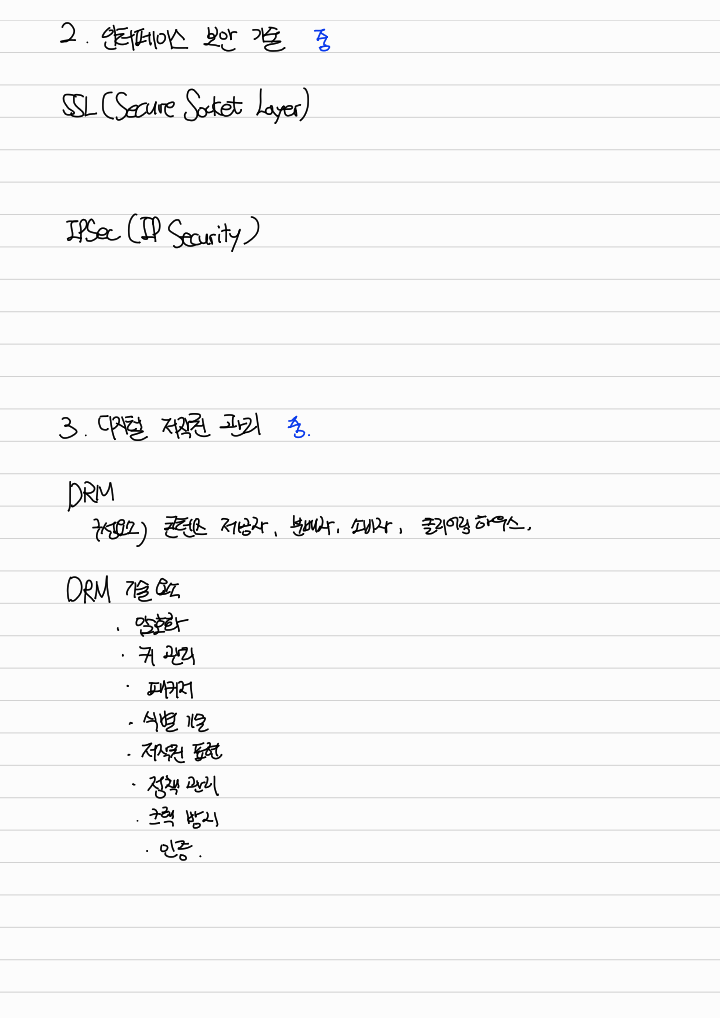 2. 인터페이스 보안 기술 중
SSL (Secure Socket Layer)
IPSec (IP Security)
3. 디지털 저작권 관리 중.
DRM
구성요소) 콘텐츠 제공자, 분배자, 소비자, 클리어링 하우스.
DRM 기술 요소
· 암호화
· 키 관리
· 패키저
· 식별 기술
· 저작권 표현
· 정책 관리
· 크랙 방지
· 인증.